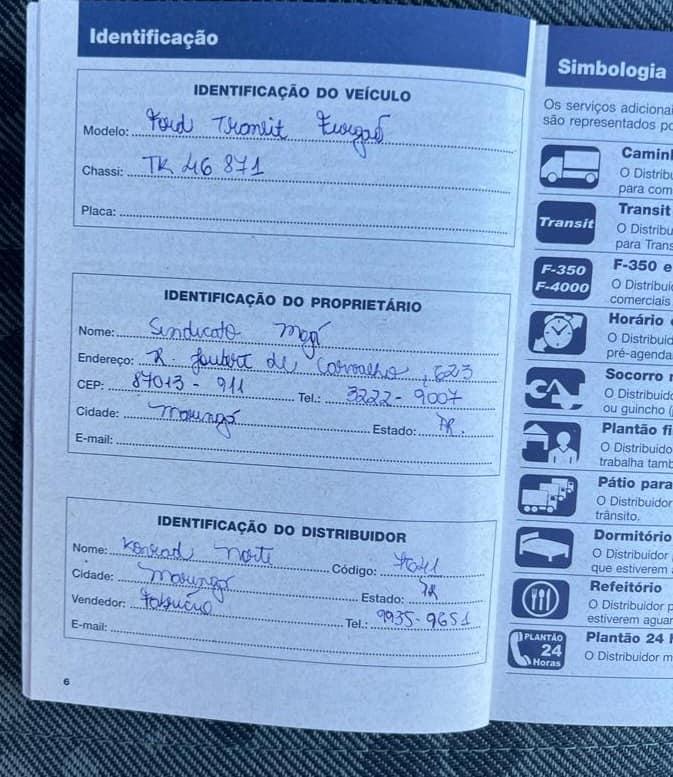 Identificação
IDENTIFICAÇÃO DO VEÍCULO
Modelo: Ford Transit Furgão
Chassi: TK 46 871
Placa:
IDENTIFICAÇÃO DO PROPRIETÁRIO
Nome: Sindicato
Endereço: R. Joubert de Carvalho, 623
CEP: 87013 - 911 Tel.: 3222 - 9007
Cidade: Maringá Estado: PR.
E-mail:
IDENTIFICAÇÃO DO DISTRIBUIDOR
Nome: Konrad Norte Código:
Cidade: Maringá Estado: PR
Vendedor: Fabrício Tel.: 9935-9651
E-mail:
6
Simbologia
Os serviços adicionai
são representados po
Caminh
O Distribu
para com
Transit
Transit
O Distribu
para Trans
F-350
F-4000
F-350 e
O Distribuid
comerciais
Horário
O Distribuid
pré-agenda
Socorro
O Distribuido
ou guincho (
Plantão fi
O Distribuido
trabalha tamb
Pátio para
O Distribuidor
trânsito.
Dormitório
O Distribuidor
que estiverem
Refeitório
O Distribuidor p
estiverem aguar
PLANTÃO
24
Horas
Plantão 24
O Distribuidor m